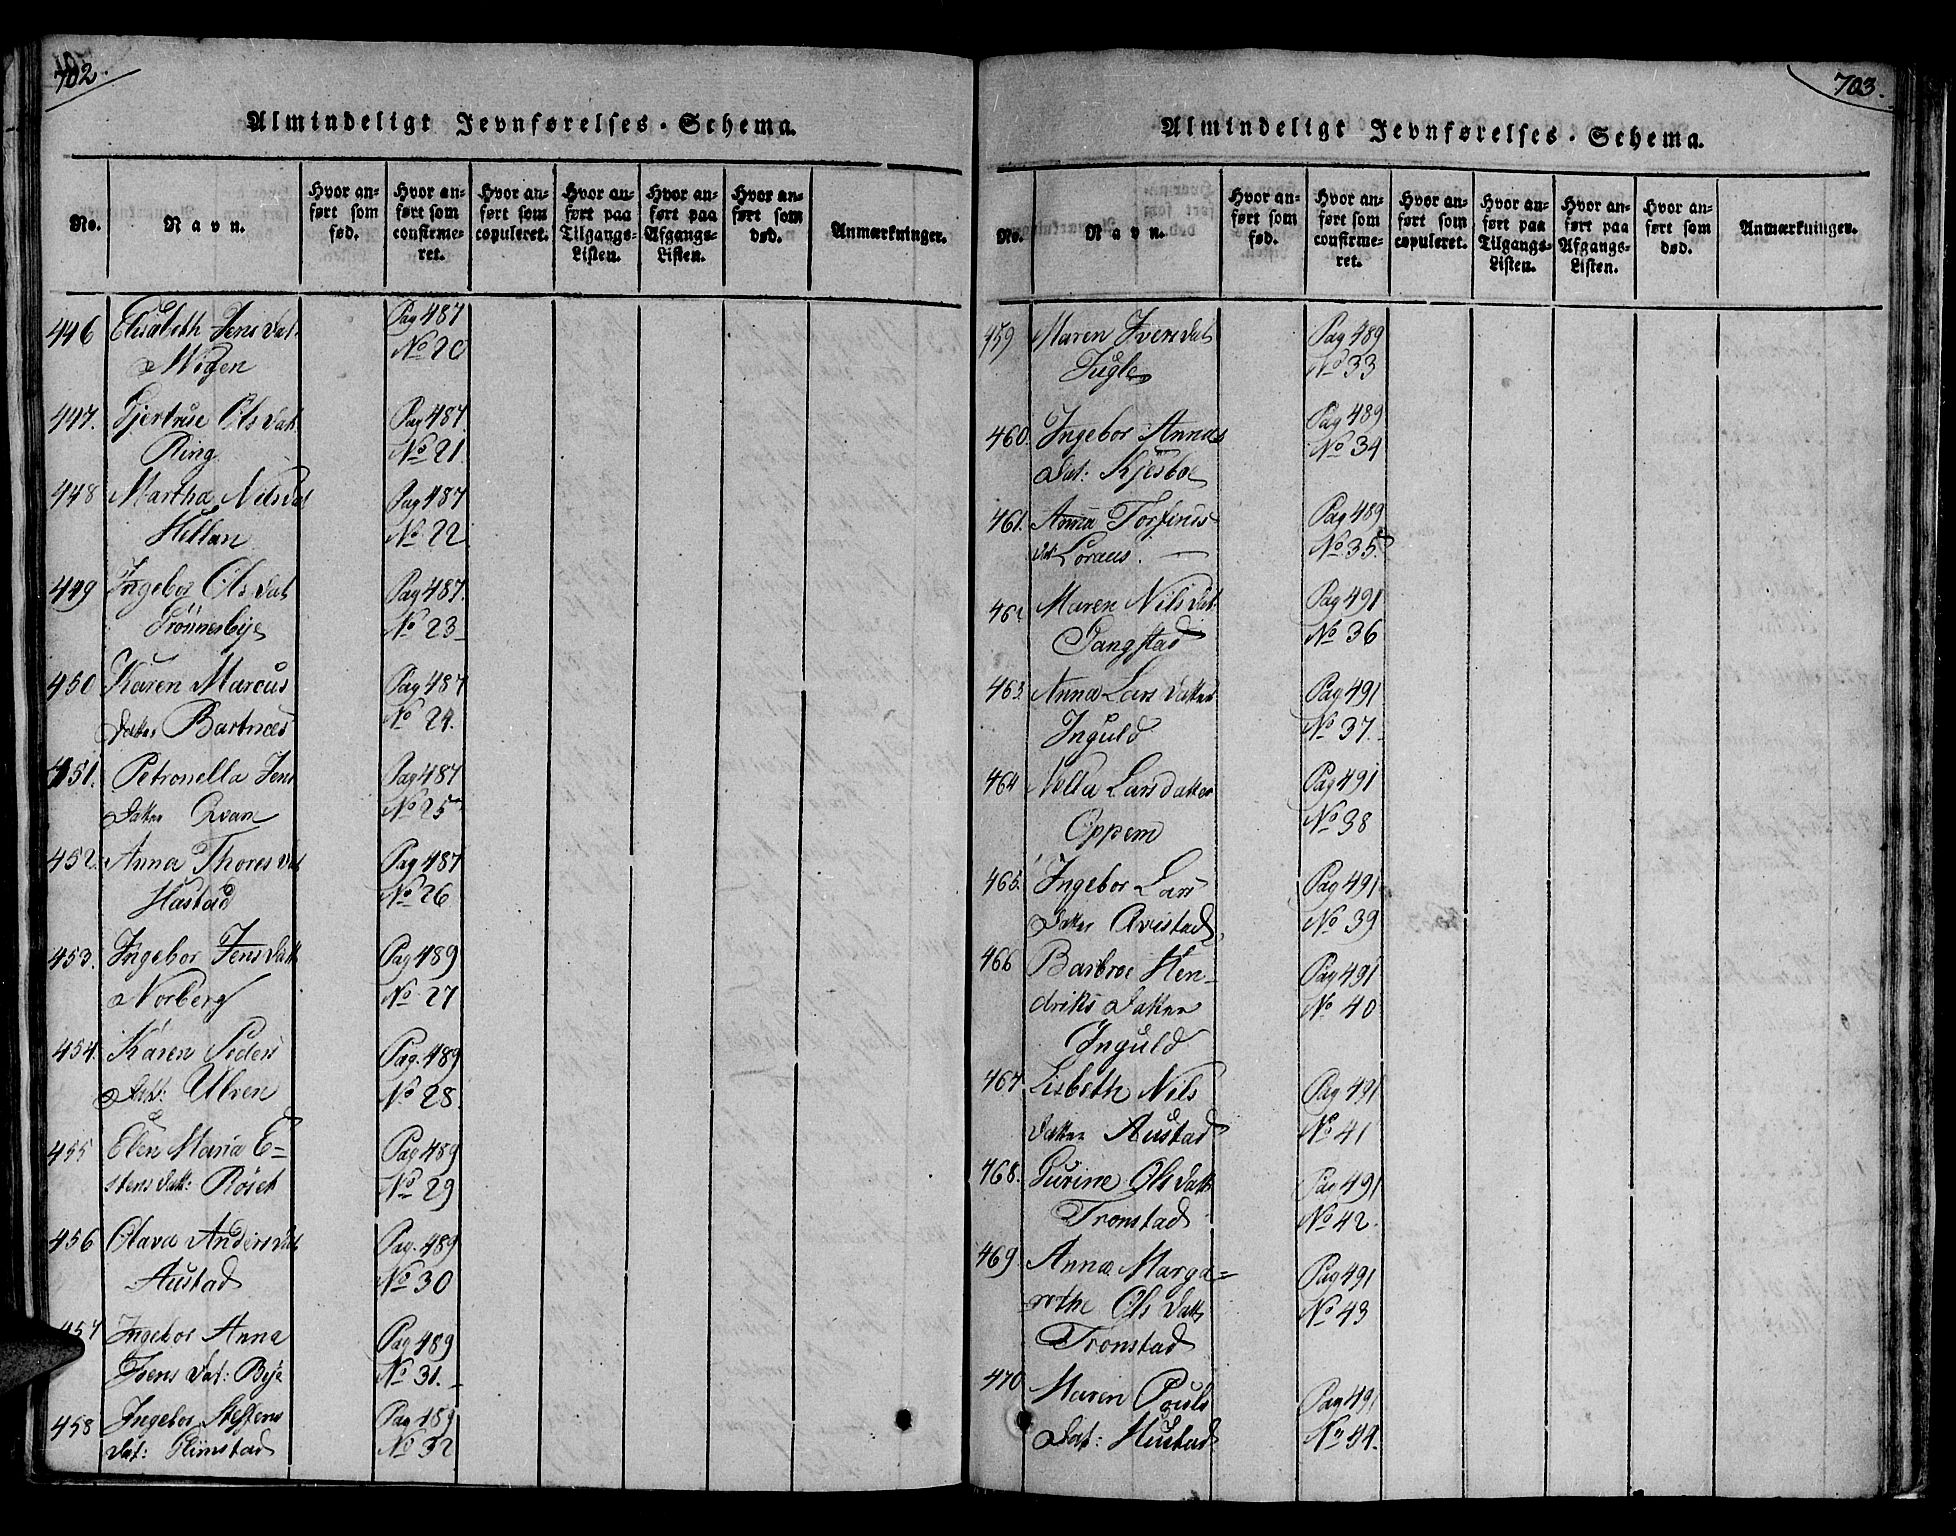 702.
Almindeligt Jevnførelses-Schema.
No.
Navn.
Hvor an-
ført som
fød.
Hvor an-
ført som
confirme-
ret.
Hvor an-
ført som
copuleret.
Hvor an-
ført paa
Tilgangs-
Listen.
Hvor an-
ført paa
Afgangs-
Listen.
Hvor an-
ført som
død.
Anmærkninger.
446 Elisabeth Jens Dat. Pag 487
Migen No 20
447. Gjertrue Ols Dat. Pag 487.
Ring No 21
448 Martha Nils Dat Pag 487
Hellan No 22
449 Ingebor Ols Dat Pag 487.
No 23
450 Karen Marcus Pag 487
Datter Bartnæs No 24.
451. Petronella Jens Pag 487
Datter Qvam No 25
452. Anna Thores Dat Pag 487
Hastad No 26
453. Ingebor Jens Datt Pag 489
Norberg No 27
454. Karen Peders Pag. 489
Dat: Ulven No 28.
455 Elen Maria E= Pag 489
stens Datt: Røset No 29
456 Olava Anders Dat Pag. 489
Austad No 30
457 Ingebor Anna Pag 489
Ivers Dat: Bye No 31.
458 Ingebor Steffens Pag 489
Dat: Glimstad No 32
703.
Almindeligt Jevnførelses-Schema.
No.
Navn.
Hvor an-
ført som
fød.
Hvor an-
ført som
confirme-
ret.
Hvor an-
ført som
copuleret.
Hvor an-
ført paa
Tilgangs-
Listen.
Hvor an-
ført paa
Afgangs-
Listen.
Hvor an-
ført som
død.
Anmærkninger.
459 Maren Ivers Dat Pag 489
Fugle No 33
460. Ingebor Annas Pag 489
Dat: Kjesboe No 34
461. Anna Torfinns Pag 489
Dat Loraus. No 35.
462 Maren Nils Dat Pag 491
Gangstad No 36
463. Anna Lars Datter Pag 491
Inguld No 37.
464 Nella Lars datter Pag 491
Oppem No 38
465. Ingebor Lars Pag 491
Datter Qvistad No 39
466 Barbroe Hen- Pag 491
driks Datter No 40
Inguld
467. Lisbeth Nils Pag 491
Datter Austad No 41
468. Gurine Ols Datt Pag 491
Tronstad No 42.
469. Anna Marga= Pag 491
rethe Ols Datt No 43
Tronstad
470 Maren Pouls Pag 491
Dat: Hustad No 44.